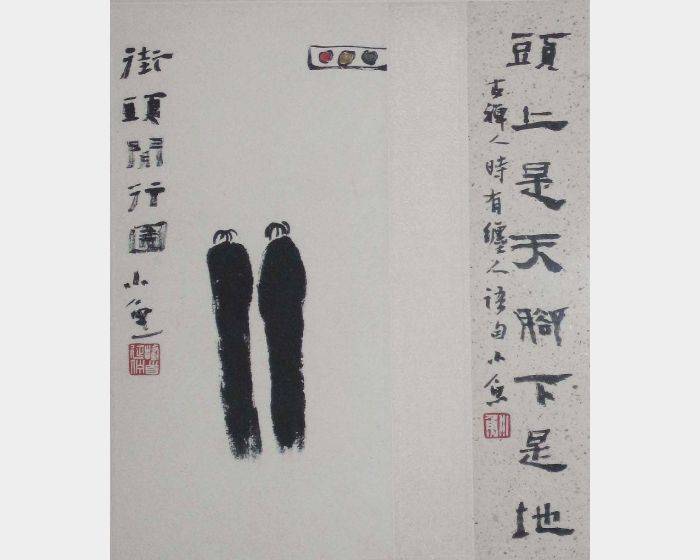 頭上是天腳下是地
古禪人時有纏人語句小魚
街頭閒行圖小魚